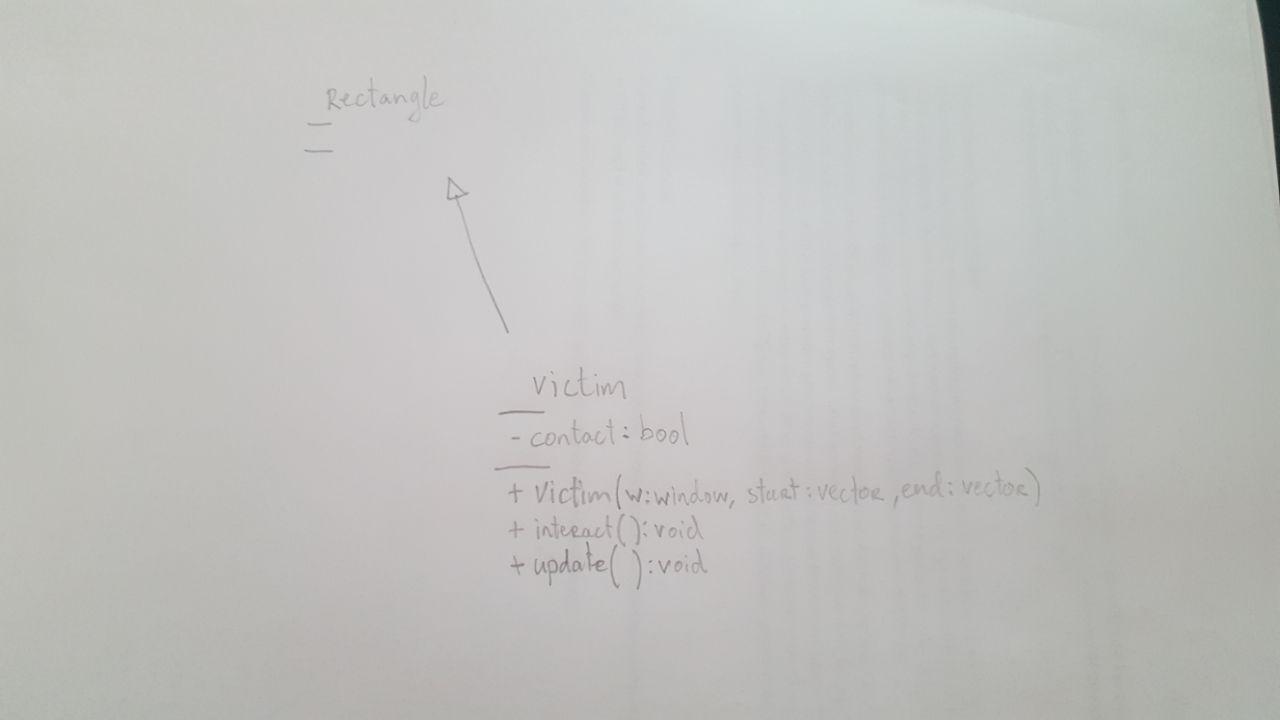 Rectangle
victim
- contact: bool
+ Victim(w:window, start:vector, end:vector)
+ interact():void
+ update( ):void